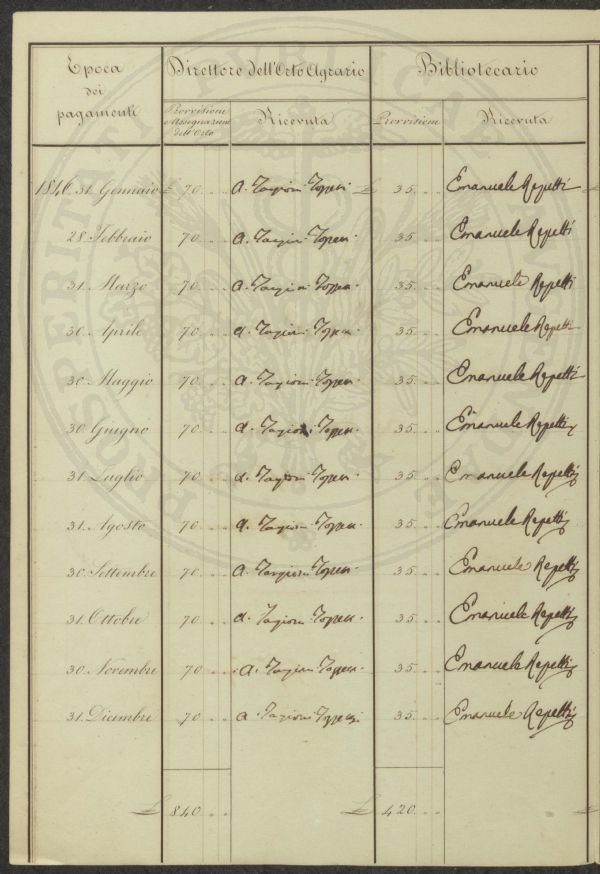 Epoca dei pagamenti
Direttore dell'Orto Agrario
Bibliotecario
Provvisione e Assegnazione dell'Orto
Ricevuta
Provvisione
Ricevuta
1846 31. Gennaio £ 70 A. Targioni Tozzetti £ 35 Emanuele Repetti
28. Febbraio 70 A. Targioni Tozzetti 35 Emanuele Repetti
31. Marzo 70 A. Targioni Tozzetti 35 Emanuele Repetti
30. Aprile 70 A. Targioni Tozzetti 35 Emanuele Repetti
30. Maggio 70 A. Targioni Tozzetti 35 Emanuele Repetti
30. Giugno 70 A. Targioni Tozzetti 35 Emanuele Repetti
31. Luglio 70 A. Targioni Tozzetti 35 Emanuele Repetti
31. Agosto 70 A. Targioni Tozzetti 35 Emanuele Repetti
30. Settembre 70 A. Targioni Tozzetti 35 Emanuele Repetti
31. Ottobre 70 A. Targioni Tozzetti 35 Emanuele Repetti
30. Novembre 70 A. Targioni Tozzetti 35 Emanuele Repetti
31. Dicembre 70 A. Targioni Tozzetti 35 Emanuele Repetti
£ 840 £ 420
PROSPERITATI PUBLICAE